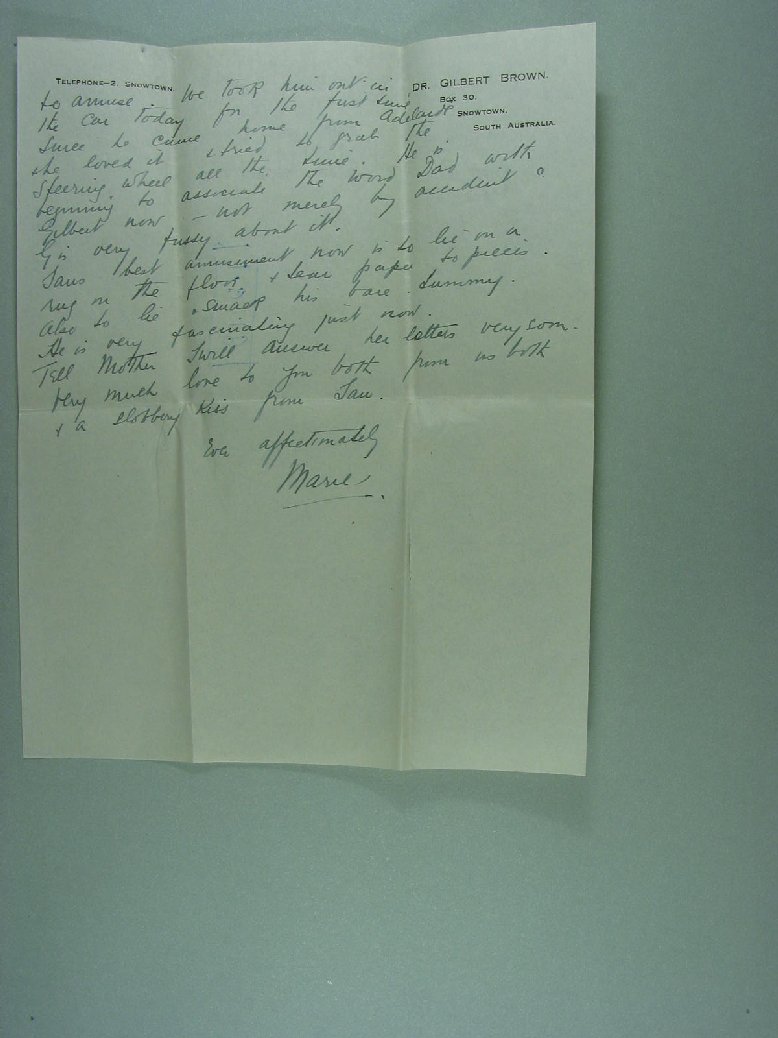 TELEPHONE—2. SNOWTOWN.
DR. GILBERT BROWN.
BOX 30.
SNOWTOWN.
SOUTH AUSTRALIA.
to amuse. We took him out in
the car today for the first time
since he came home from Adelaide
she loved it & tried to grab the
steering wheel all the time. He is
beginning to associate the word Dad with
Gilbert now — not merely by accident &
G is very fussy about it.
Ians best amusement now is to lie on a
rug on the floor & tear paper to pieces.
also to lie & smack his bare tummy.
He is very fascinating just now.
Tell Mother I will answer her letters very soon.
Very much love to you both from us both
& a slobbery kiss from Ian.
Ever affectionately
Marie.